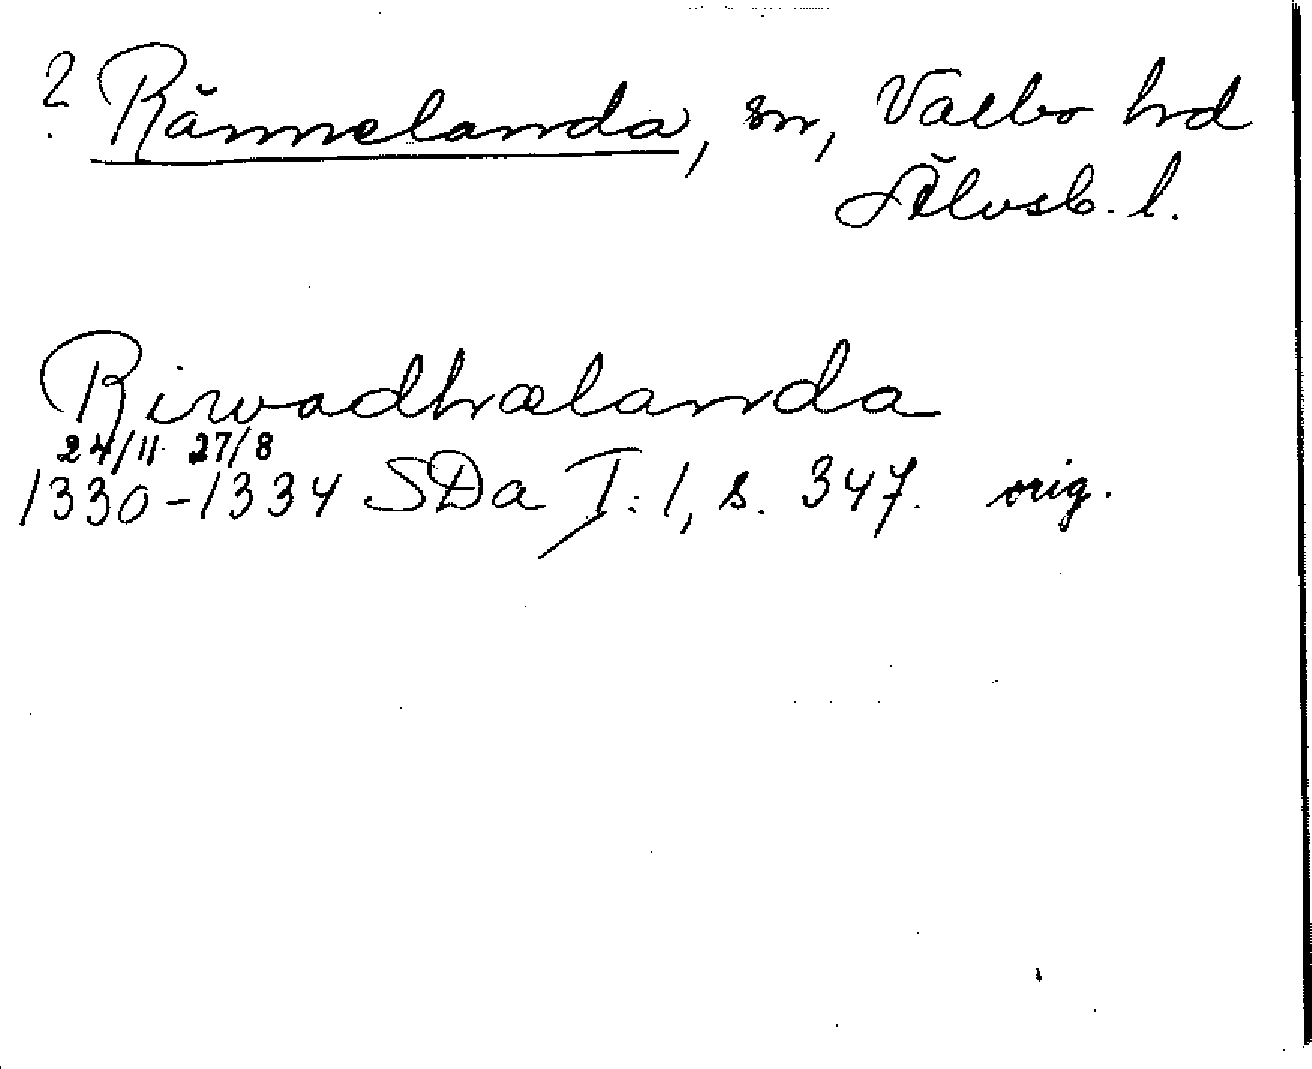 ? Rännelanda, sn, Valbo hrd
Älvsb. l.
Rirvadhælanda
24/11 27/8
1330-1334 SDa I:1, s. 347. orig.